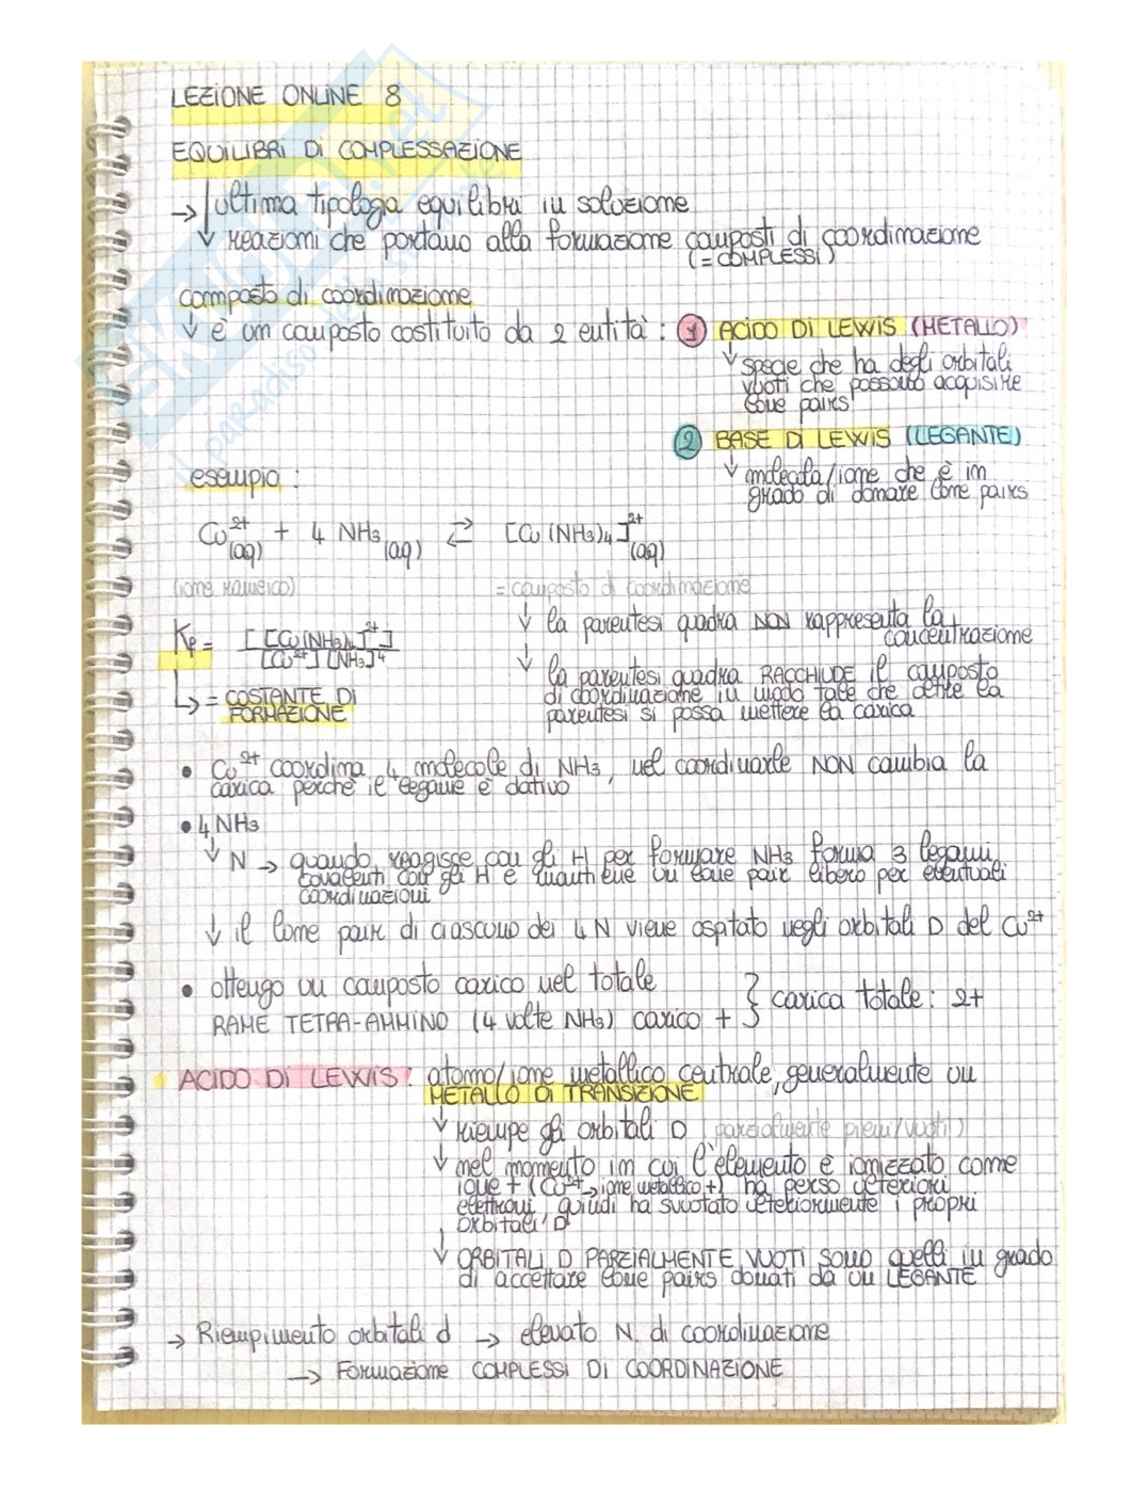 LEZIONE ONLINE 8
EQUILIBRI DI COMPLESSAZIONE
→ ultima tipologia equilibri in soluzione
↓ reazioni che portano alla formazione composti di coordinazione
(= COMPLESSI)
composto di coordinazione
↓ è un composto costituito da 2 entità : 1 ACIDO DI LEWIS (METALLO)
↓ specie che ha degli orbitali
vuoti che possono acquisire
lone pairs
2 BASE DI LEWIS (LEGANTE)
↓ molecola/ione che è in
grado di donare lone pairs
esempio :
Cu²⁺(aq) + 4 NH₃(aq) ⇄ [Cu(NH₃)₄]²⁺(aq)
(ione rameico) = composto di coordinazione
↓ la parentesi quadra NON rappresenta la
concentrazione
Kf = [[Cu(NH₃)₄]²⁺] / [Cu²⁺][NH₃]⁴
↳ = COSTANTE DI FORMAZIONE
↓ la parentesi quadra RACCHIUDE il composto
di coordinazione in modo tale che oltre la
parentesi si possa mettere la carica
• Cu²⁺ coordina 4 molecole di NH₃, nel coordinarle NON cambia la
carica perchè il legame è dativo
• 4 NH₃
↓ N → quando reagisce con gli H per formare NH₃ forma 3 legami
covalenti con gli H e mantiene un lone pair libero per eventuali
coordinazioni
↓ il lone pair di ciascuno dei 4 N viene ospitato negli orbitali D del Cu²⁺
• ottengo un composto carico nel totale
RAME TETRA-AMMINO (4 volte NH₃) carico + } carica totale: 2+
ACIDO DI LEWIS: atomo/ione metallico centrale, generalmente un
METALLO DI TRANSIZIONE
↓ riempe gli orbitali D (parzialmente pieni/vuoti)
↓ nel momento in cui l'elemento è ionizzato come
ione + (Cu²⁺ → ione metallico +) ha perso ulteriori
elettroni, quindi ha svuotato ulteriormente i propri
orbitali D
↓ ORBITALI D PARZIALMENTE VUOTI sono quelli in grado
di accettare lone pairs donati da un LEGANTE
→ Riempimento orbitali d → elevato N. di coordinazione
→ Formazione COMPLESSI DI COORDINAZIONE